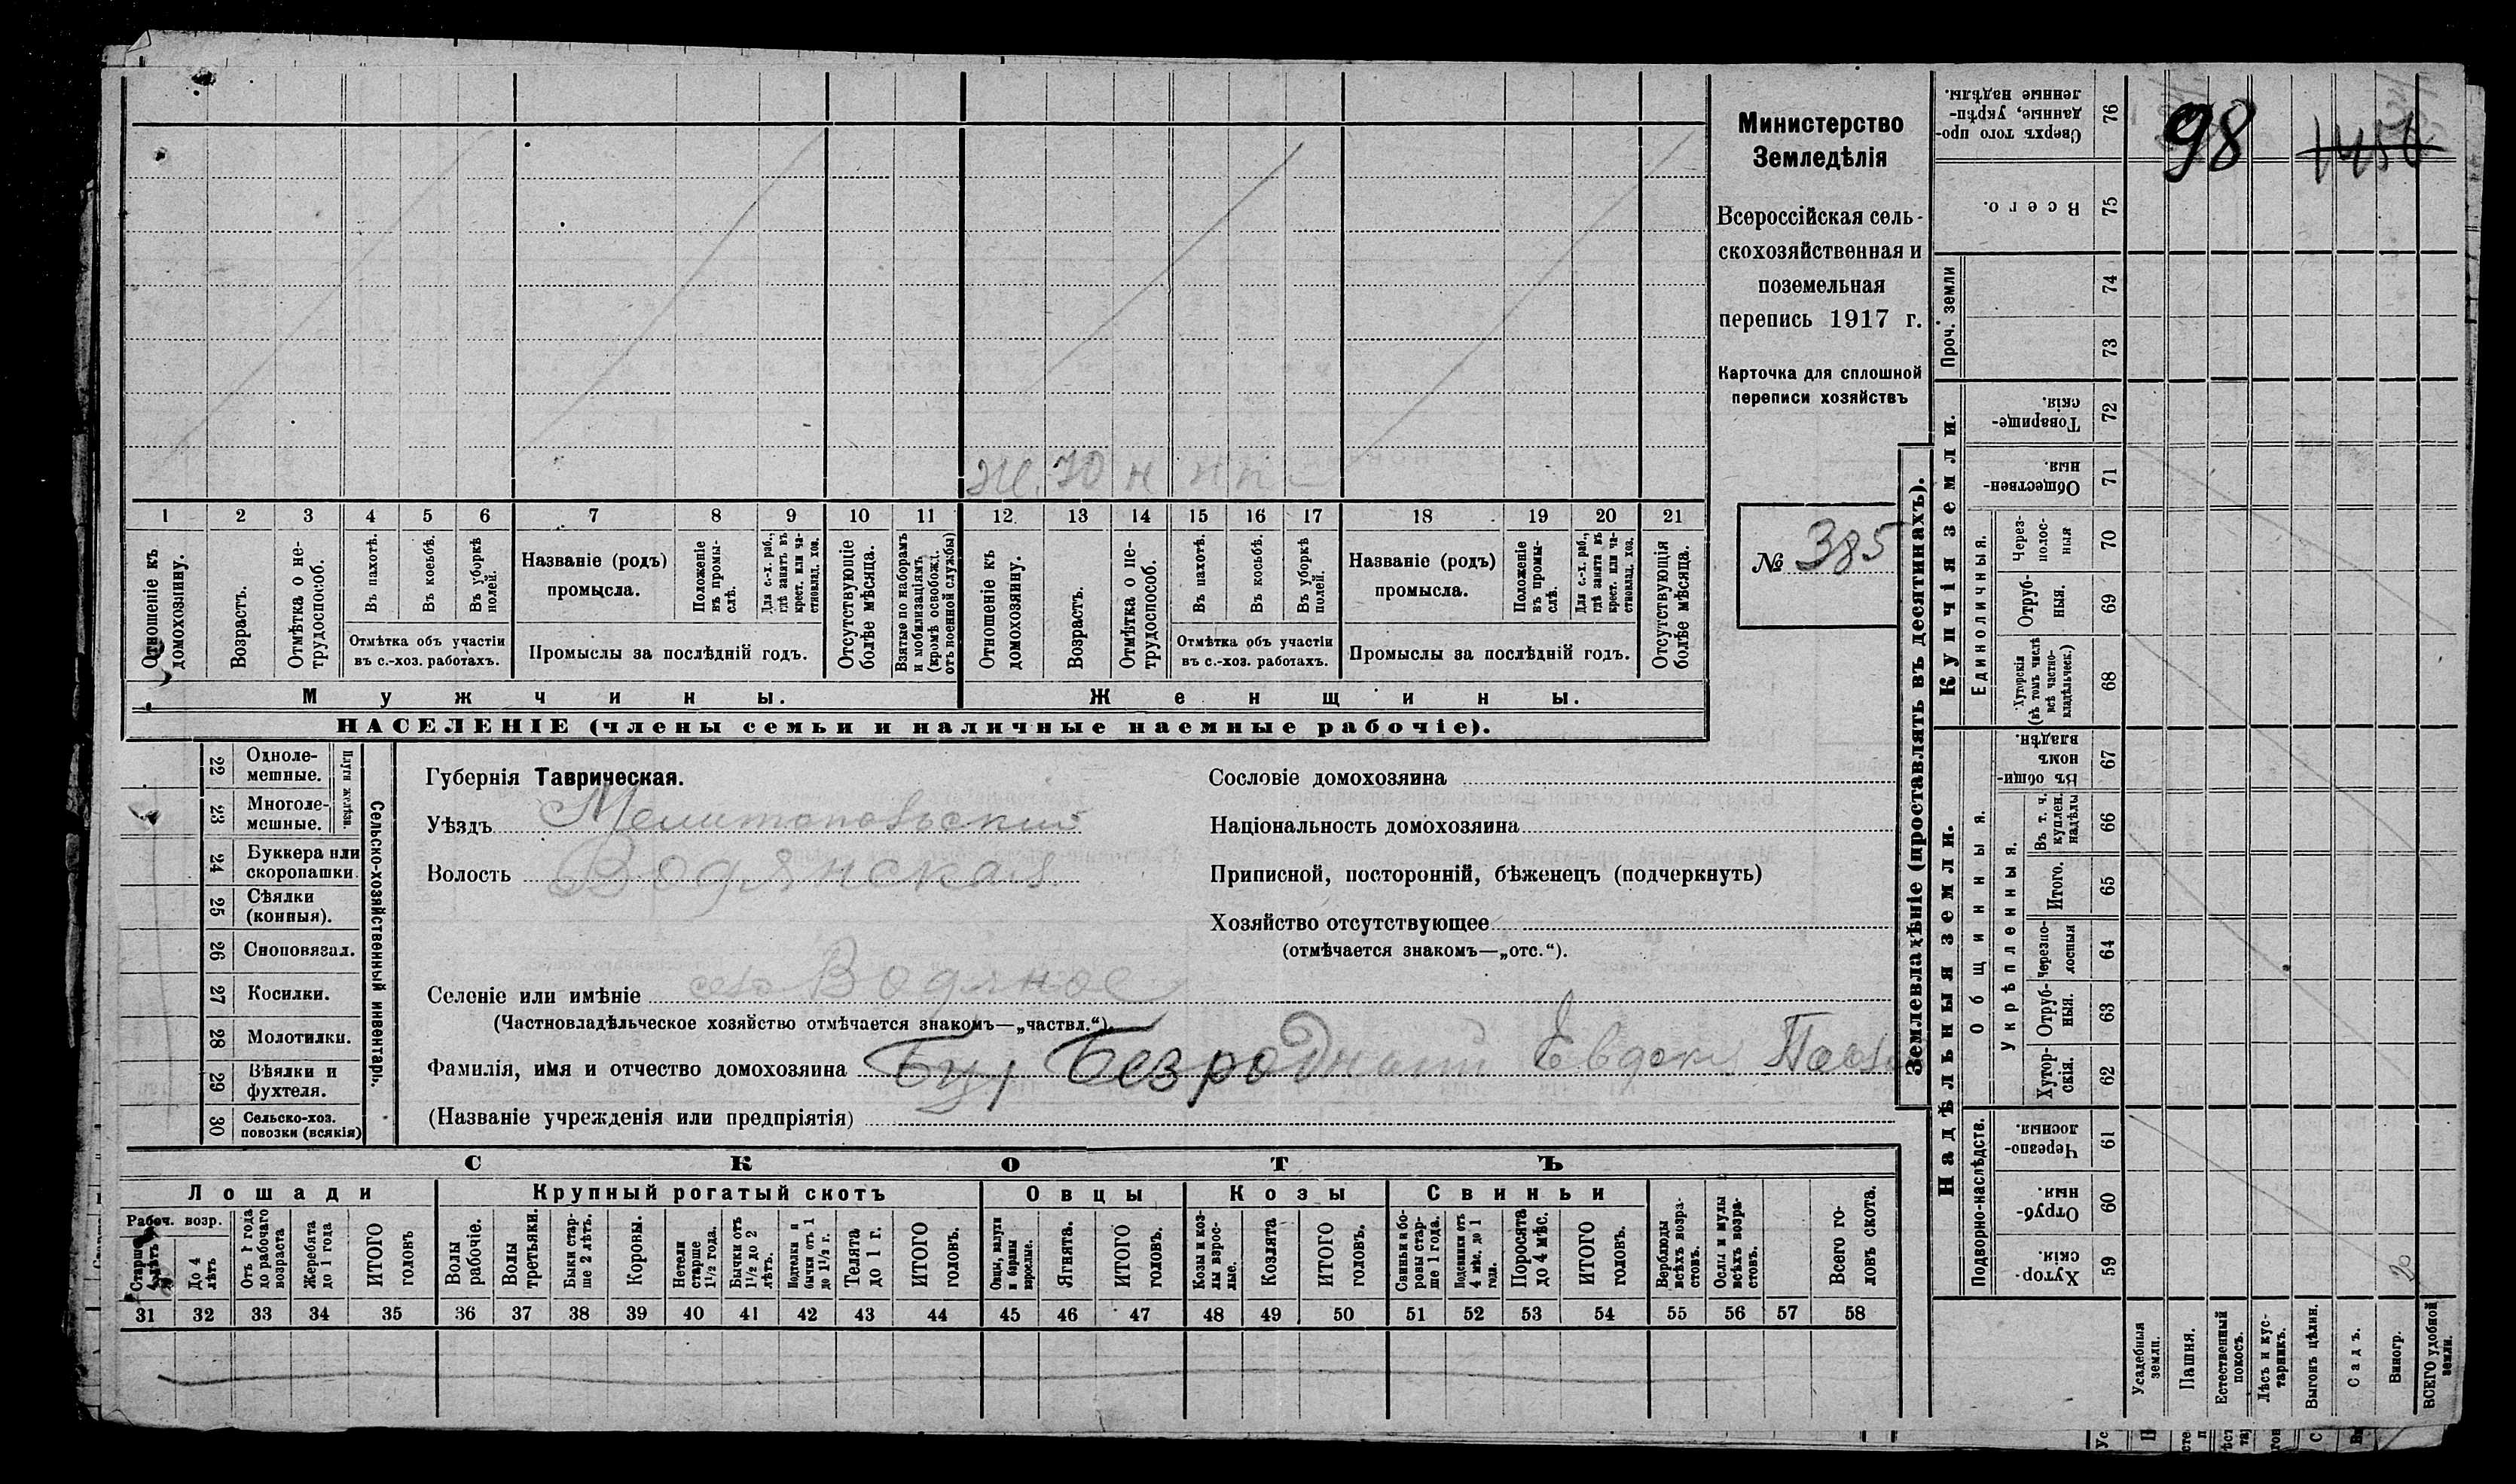 Министерство
Земледѣлія
Всероссійская сель-
скохозяйственная и
поземельная
перепись 1917 г.
Карточка для сплошной
переписи хозяйствъ
№ 385
98
1456
Ж. 70 н н п —
1 2 3 4 5 6 7 8 9 10 11 12 13 14 15 16 17 18 19 20 21
Отношеніе къ домохозяину.
Возрастъ.
Отмѣтка о не-трудоспособ.
Въ пахотѣ.
Въ косьбѣ.
Въ уборкѣ полей.
Отмѣтка объ участіи
въ с.-хоз. работахъ.
Названіе (родъ)
промысла.
Положеніе въ промы-слѣ.
Для с.-х. раб., гдѣ занятъ въ крест. или ча-стновлад. хоз.
Промыслы за послѣдній годъ.
Отсутствующіе болѣе мѣсяца.
Взятые по наборамъ и мобилизаціямъ (кромѣ освобожд. отъ военной службы)
Отношеніе къ домохозяину.
Возрастъ.
Отмѣтка о не-трудоспособ.
Въ пахотѣ.
Въ косьбѣ.
Въ уборкѣ полей.
Отмѣтка объ участіи
въ с.-хоз. работахъ.
Названіе (родъ)
промысла.
Положеніе въ промы-слѣ.
Для с.-х. раб., гдѣ занята въ крест. или ча-стновлад. хоз.
Промыслы за послѣдній годъ.
Отсутствующія болѣе мѣсяца.
Мужчины.
Женщины.
НАСЕЛЕНІЕ (члены семьи и наличные наемные рабочіе).
22 Одноле-мешные.
23 Многоле-мешные.
Плуги желѣзн.
24 Буккера или скоропашки
25 Сѣялки (конныя).
26 Сноповязал.
27 Косилки.
28 Молотилки.
29 Вѣялки и фухтеля.
30 Сельско-хоз. повозки (всякія)
Сельско-хозяйственный инвентарь.
Губернія Таврическая.
Уѣздъ Мелитопольскій
Волость Водянская
Сословіе домохозяина
Національность домохозяина
Приписной, посторонній, бѣженецъ (подчеркнуть)
Хозяйство отсутствующее
(отмѣчается знакомъ—„отс.“).
Селеніе или имѣніе село Водяное
(Частновладѣльческое хозяйство отмѣчается знакомъ—„частвл.“).
Фамилія, имя и отчество домохозяина Безродный Евдокія
(Названіе учрежденія или предпріятія)
СКОТЪ
Лошади
Крупный рогатый скотъ
Овцы
Козы
Свиньи
Рабоч. возр.
Старше 4 лѣтъ
До 4 лѣтъ
Отъ 1 года до рабочаго возраста
Жеребята до 1 года
ИТОГО головъ
Волы рабочіе.
Волы третьяки.
Быки стар-ше 2 лѣтъ.
Коровы.
Нетели старше 1½ года.
Бычки отъ 1½ до 2 лѣтъ.
Подтелки и бычки отъ 1 до 1½ г.
Телята до 1 г.
ИТОГО головъ.
Овцы, валухи и бараны взрослые.
Ягнята.
ИТОГО головъ.
Козы и коз-лы взрос-лые.
Козлята
ИТОГО головъ.
Свиньи и бо-ровы стар-ше 1 года.
Подсвинки отъ 4 мѣс. до 1 года.
Поросята до 4 мѣс.
ИТОГО головъ.
Верблюды всѣхъ возра-стовъ.
Ослы и мулы всѣхъ возра-стовъ.
Всего го-ловъ скота.
31 32 33 34 35 36 37 38 39 40 41 42 43 44 45 46 47 48 49 50 51 52 53 54 55 56 57 58
Землевладѣніе (проставлять въ десятинахъ).
Сверхъ того про-данные, укрѣп-ленные надѣлы. 76
Всего. 75
Проч. земли
74
73
Купчія земли.
Товарище-скія. 72
Обществен-ныя. 71
Единоличныя.
Черезполос-ныя 70
Отруб-ныя. 69
Хуторскія (въ томъ числѣ всѣ частно-владѣльческ.) 68
Надѣльныя земли.
Общинныя.
Въ общи-номъ владѣн. 67
Укрѣпленныя.
Въ т. ч. куплен. надѣлы 66
Итого. 65
Черезпо-лосныя 64
Отруб-ныя. 63
Хутор-скія. 62
Подворно-наслѣдств.
Черезпо-лосныя. 61
Отруб-ныя. 60
Хутор-скія. 59
Усадебныя земли.
Пашня.
Естественный покосъ.
Лѣсъ и кус-тарникъ.
Выгонъ цѣлин.
Садъ.
Виногр.
ВСЕГО удобной земли.